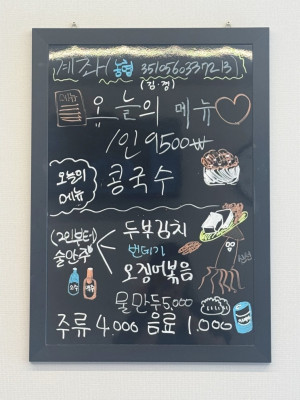 계좌(농협 3510560337213)
(김경)
메뉴
오늘의 메뉴
1인 9500₩
오늘의 메뉴
콩국수
(2인부터)
술안주
두부김치
번데기
오징어볶음
소주
맥주
물만두 5,000
주류 4,000 음료 1,000